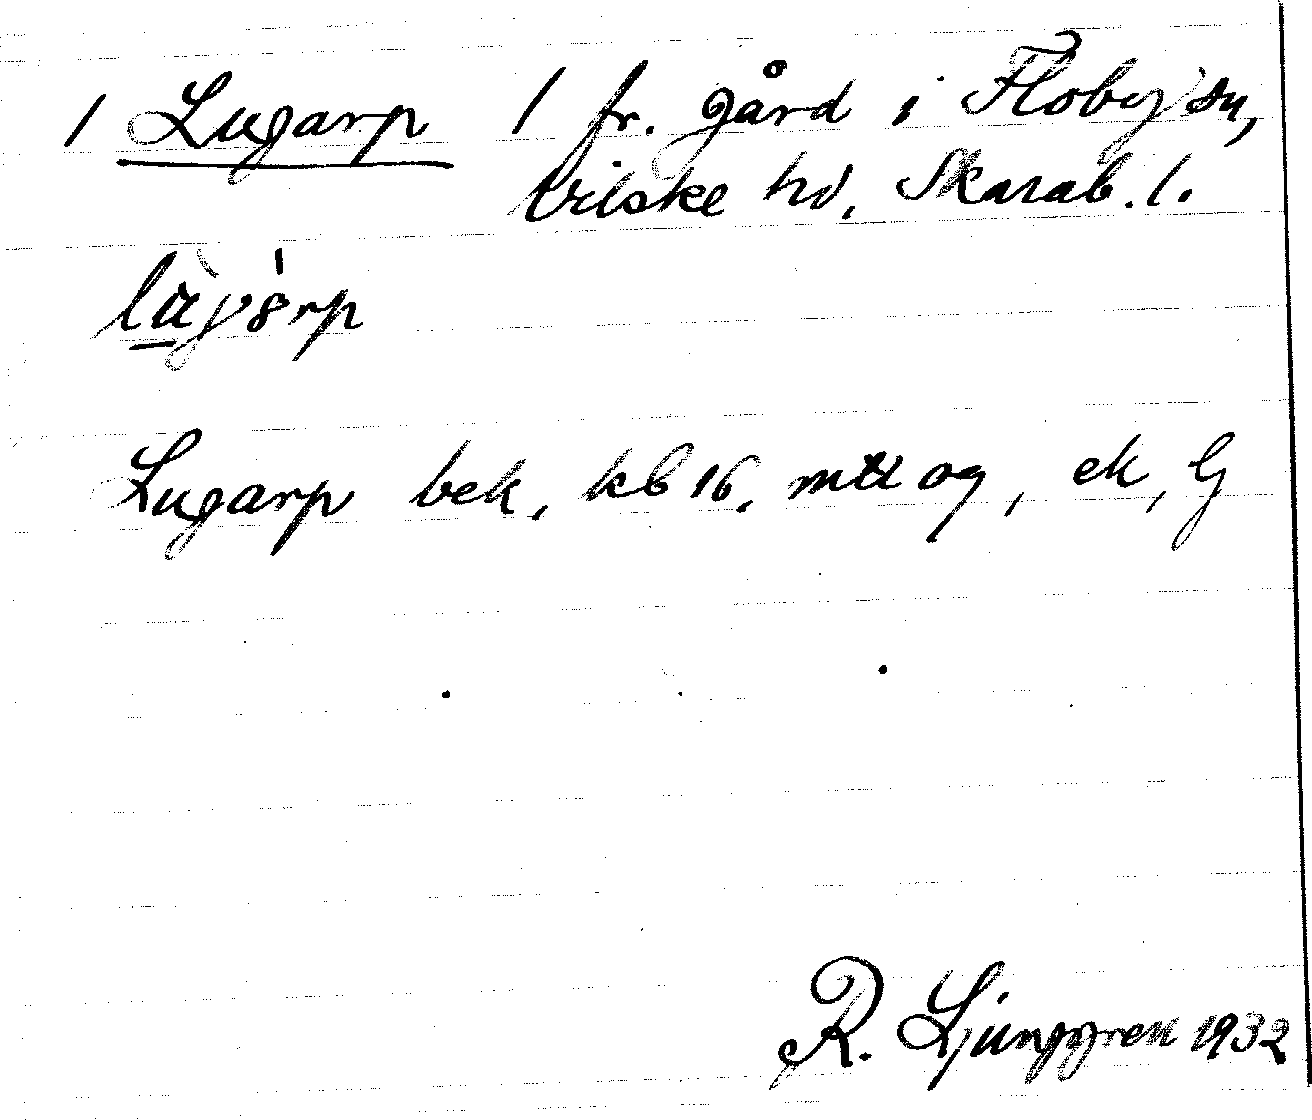 1 Lugarp 1 fr. gård i Floby sn,
Vilske hd, Skarab. l.
Lugarp bek, kb 16, mtt og, ek, G
R. Ljunggren 1932